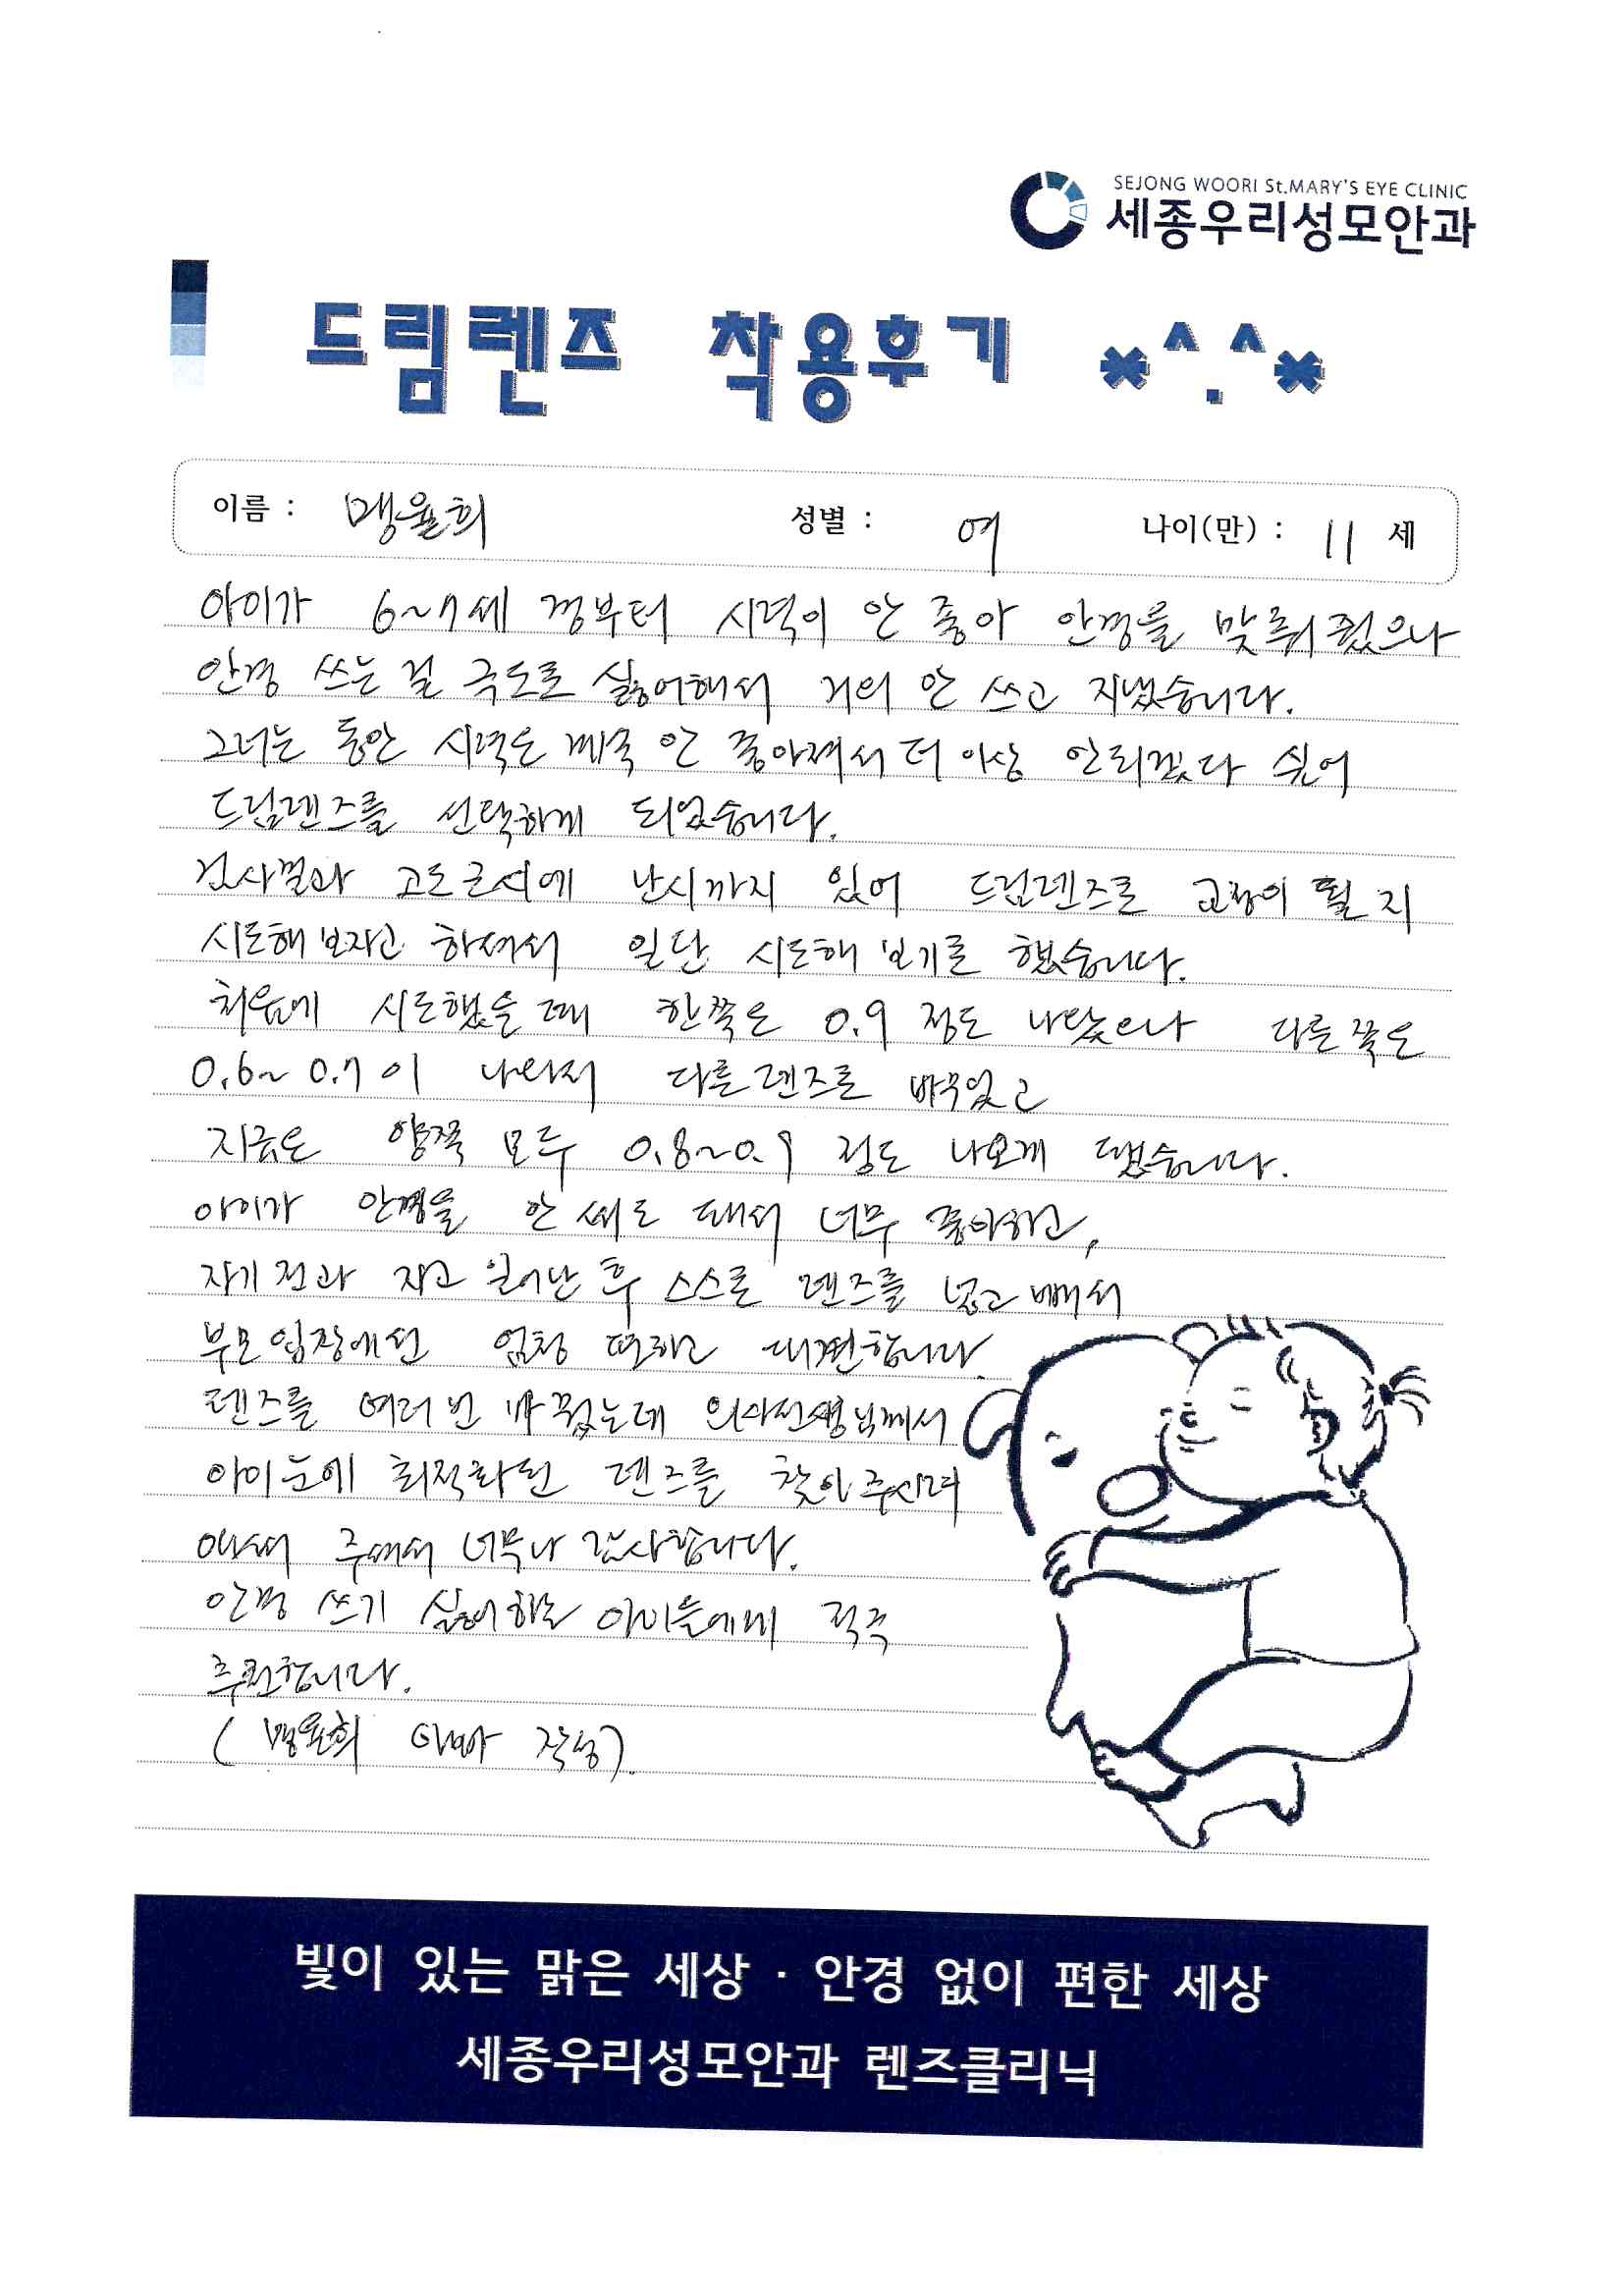 SEJONG WOORI St.MARY'S EYE CLINIC
세종우리성모안과
드림렌즈 착용후기 *^.^*
이름 : 맹율희 성별 : 여 나이(만) : 11 세
아이가 6~7세 경부터 시력이 안 좋아 안경을 맞춰줬으나
안경 쓰는 걸 극도로 싫어해서 거의 안 쓰고 지냈습니다.
그러는 동안 시력은 계속 안 좋아져서 더 이상 안되겠다 싶어
드림렌즈를 선택하게 되었습니다.
검사결과 고도근시에 난시까지 있어 드림렌즈로 교정이 될 지
시도해보자고 하셔서 일단 시도해 보기로 했습니다.
처음에 시도했을 때 한쪽은 0.9 정도 나왔으나 다른쪽은
0.6~0.7이 나와서 다른렌즈로 바꾸었고
지금은 양쪽 모두 0.8~0.9 정도 나오게 됐습니다.
아이가 안경을 안 써도 돼서 너무 좋아하고,
자기 전과 자고 일어난 후 스스로 렌즈를 넣고 빼서
부모 입장에선 엄청 편하고 대견합니다.
렌즈를 여러 번 바꿨는데 의사선생님께서
아이눈에 최적화된 렌즈를 찾아주시려
애써 주셔서 너무나 감사합니다.
안경 쓰기 싫어하는 아이들에게 적극
추천합니다.
(맹율희 아빠 작성).
빛이 있는 맑은 세상 · 안경 없이 편한 세상
세종우리성모안과 렌즈클리닉